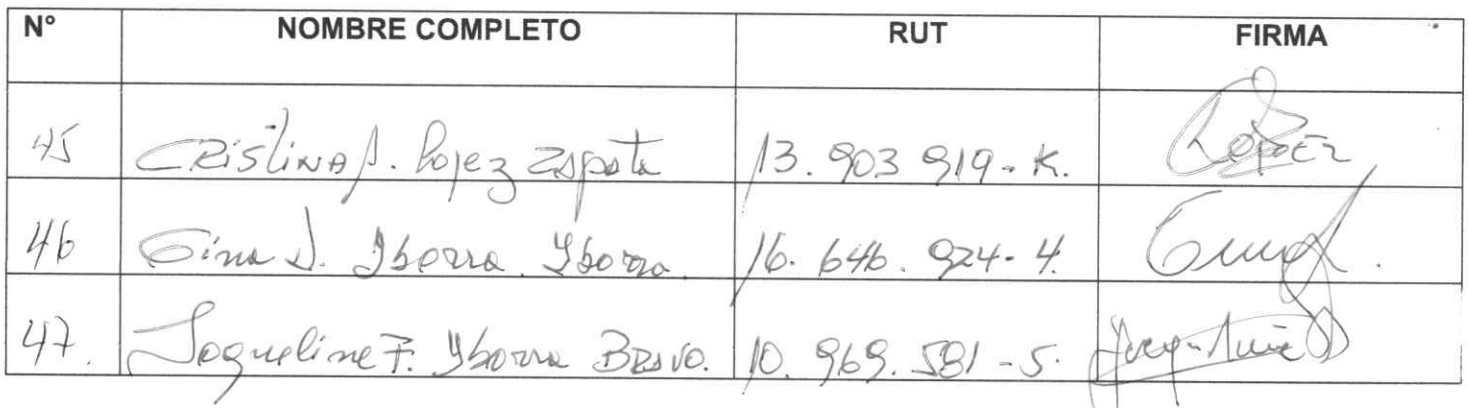 N° NOMBRE COMPLETO RUT FIRMA
45 Cristina J. Lopez Zapata 13.903 919-K. Lopez
46 Gina J. Yborra Yborra. 16.646.924-4.
47. Jaqueline F. Yborra Bravo. 10.969.581-5.